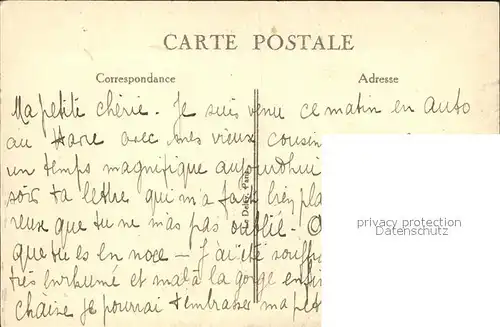 CARTE POSTALE
Correspondance
Adresse
Ma petite chérie. Je suis venu ce matin en auto
au Havre avec mes vieux cousin
un temps magnifique aujourdhui
soir ta lettre qui m'a fait bien pla
reux que tu ne mas pas oublié.
que tu es en noce — J'ai été souffr
très enrhumé et mal à la gorge enfin
chaise je pourrai t'embrasser ma pet
privacy protection
www.ansichtskartenversand.com